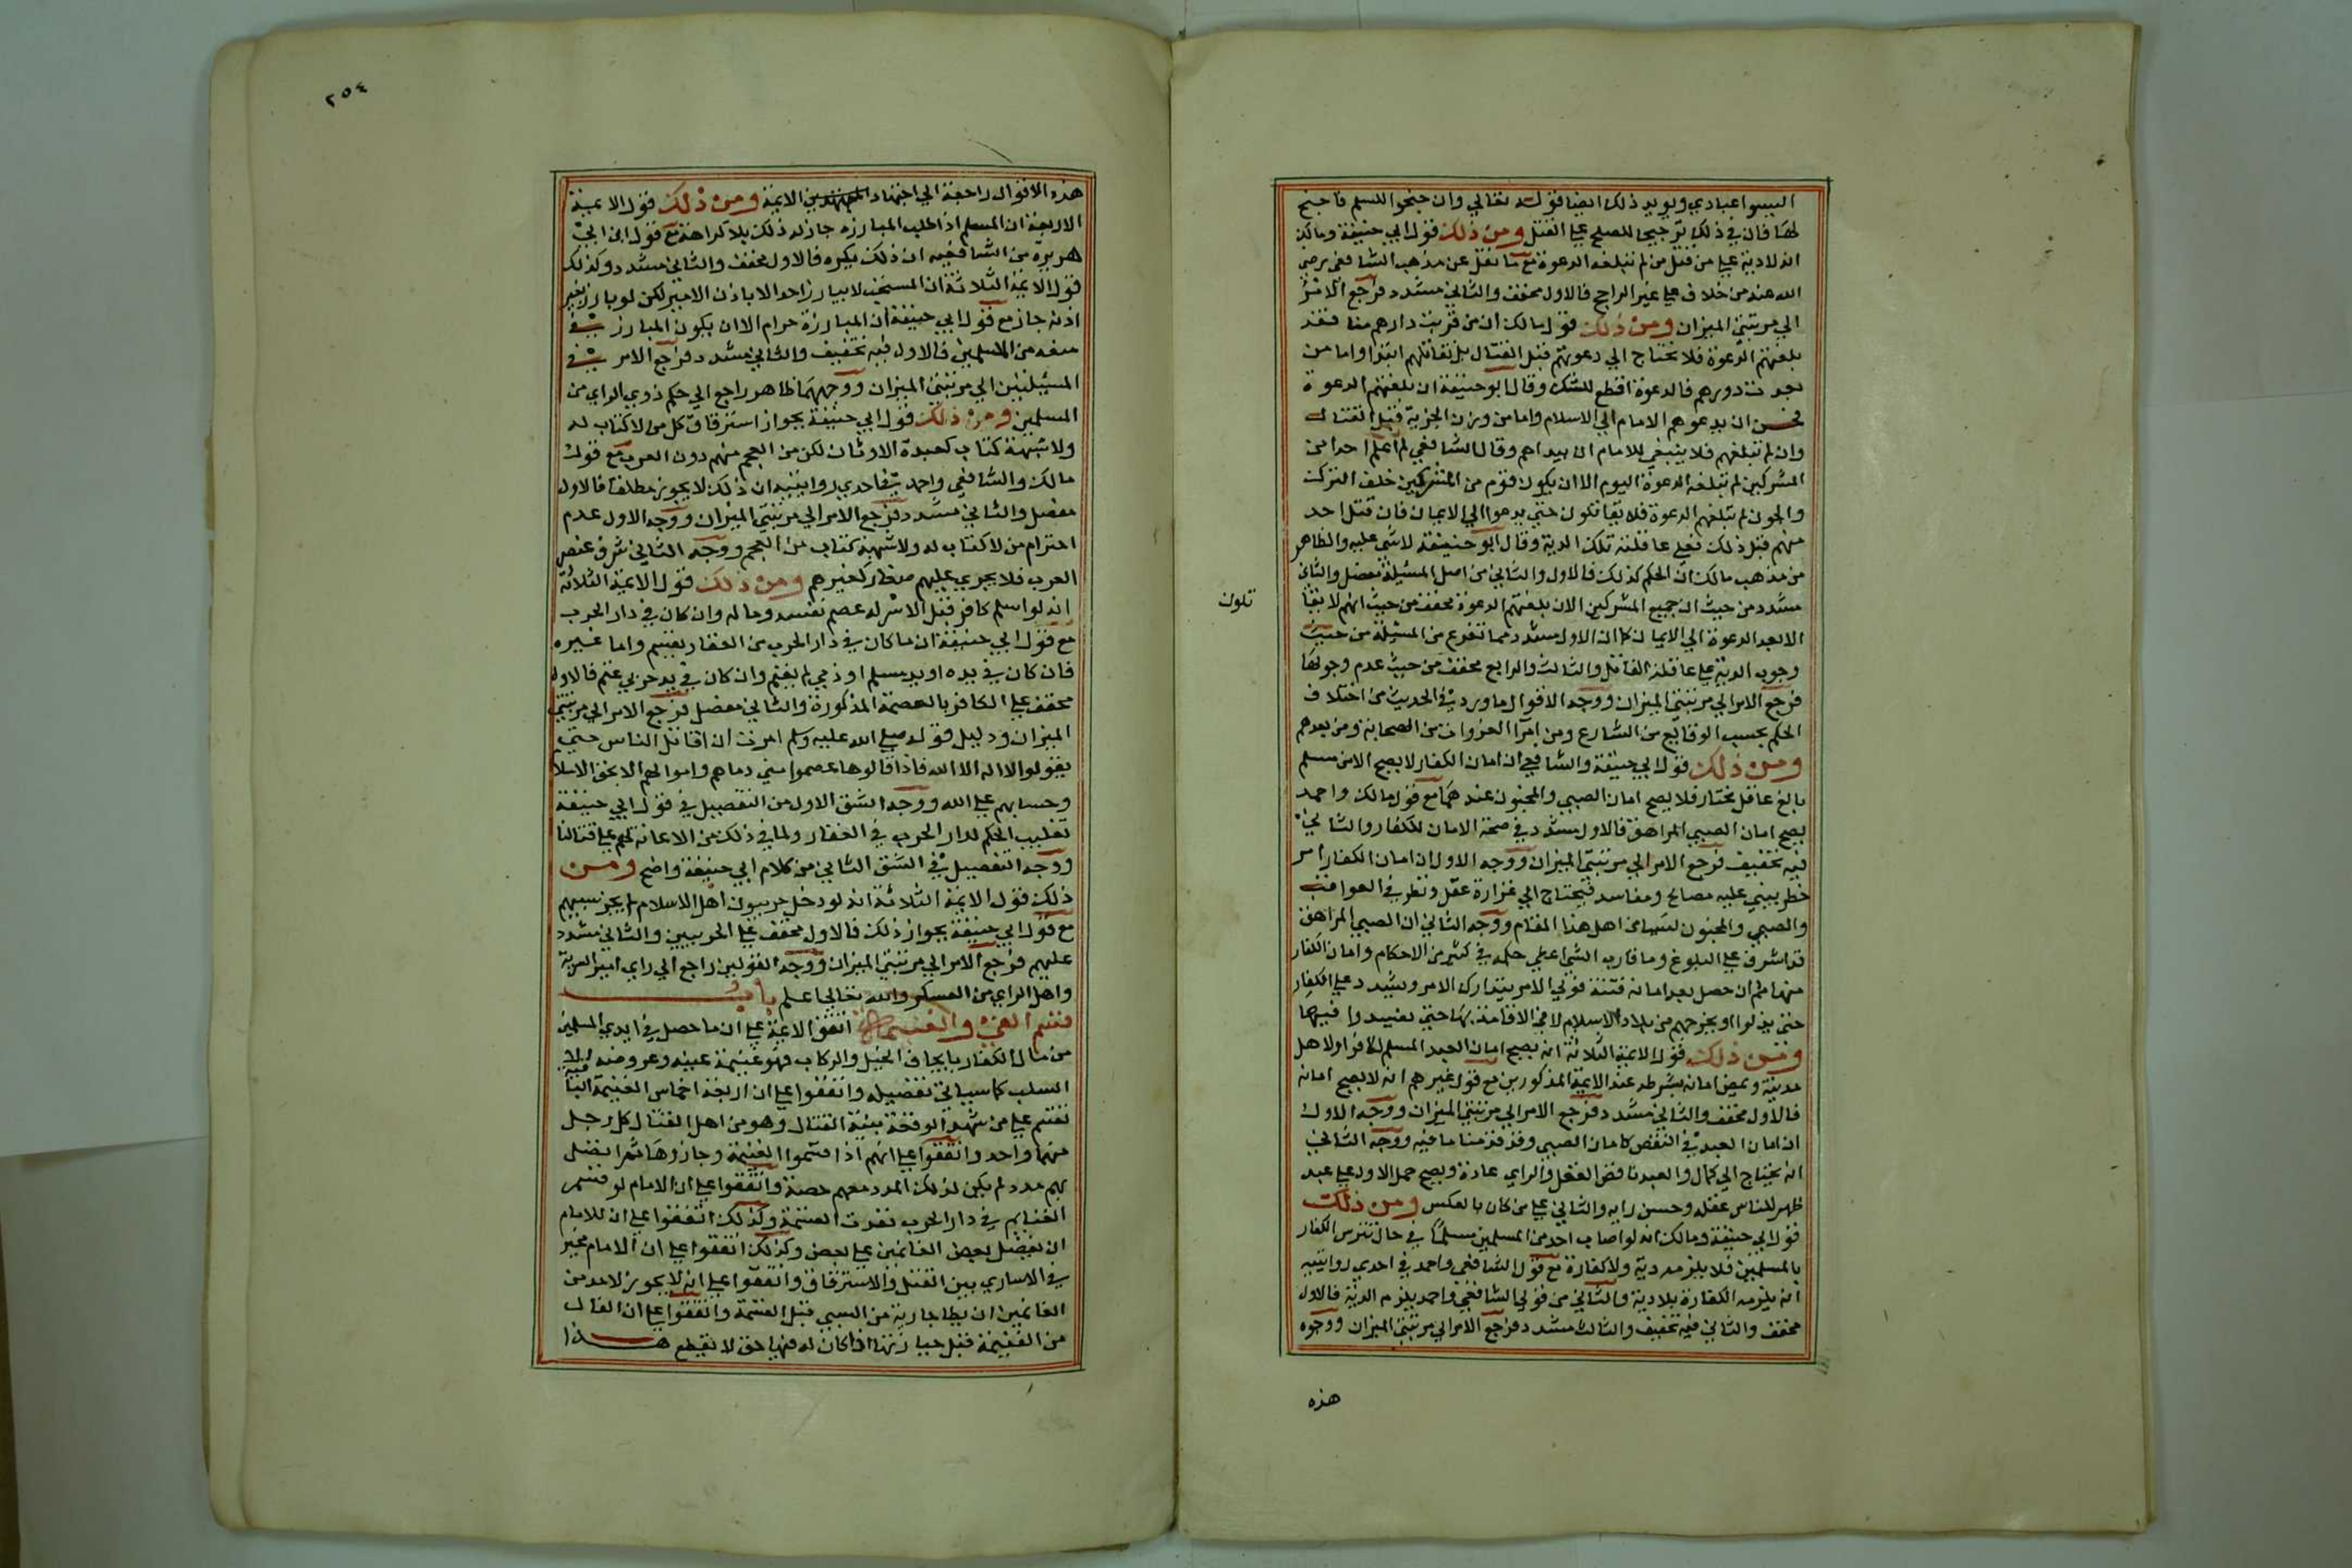 اليسوا عبادي ويويد ذلك ايضا قوله تعالي وان جنحوا للسلم فاجنح
لها فان في ذلك ترجيحا للصلح علي القتل ومن ذلك قول ابي حنيفة ومالك
انه لا دية علي من قتل من لم تبلغه الدعوة مع ما نقل عن مذهب الشافعي رضي
الله عنه من خلاف علي غير الراجح فالاول مخفف والثاني مشدد فرجع الامر
الي مرتبتي الميزان ومن ذلك قول مالك ان من قربت دارهم منا فقد
بلغتهم الدعوة فلا نحتاج الي دعوتهم قبل القتال بل نقاتلهم ابتدا واما من
بعدت دورهم فالدعوة اقطع للشك وقال ابو حنيفة ان بلغتهم الدعوة
فحسن ان يدعوهم الامام الي الاسلام واما من وزن الجزية قبل القتال
وان لم تبلغهم فلا ينبغي للامام ان يبداهم وقال الشافعي لم اعلم احدا من
المشركين لم تبلغه الدعوة اليوم الا ان يكون قوم من المشركين خلف الترك
والجون لم تبلغهم الدعوة فلا يقاتلون حتي يدعوا الي الايمان فان قتل احد
منهم قبل ذلك فعلي عاقلته تلك الدية وقال ابو حنيفة لا شي عليه والظاهر
من مذهب مالك ان الحكم كذلك فالاول والثاني من اصل المسئلة مفصل والثاني
مشدد من حيث ان جميع المشركين الان بلغتهم الدعوة مخفف من حيث انهم لا يقا
تلون
الا بعد الدعوة الي الايمان كما ان الاول مشدد مما تفرع من المسئلة من حيث
وجوب الدية علي عاقلة القاتل والثالث والرابع مخفف من حيث عدم وجوبها
فرجع الامر الي مرتبتي الميزان ووجه الاقوال ما ورد في الحديث من اختلاف
الحكم بحسب الوقايع من الشارع ومن امرآ الغزوات من الصحابة ومن بعدهم
ومن ذلك قول ابي حنيفة والشافعي ان امان الكفار لا يصح الا من مسلم
بالغ عاقل مختار فلا يصح امان الصبي والمجنون عندهما مع قول مالك واحمد
يصح امان الصبي المراهق فالاول مشدد في صحة الامان للكفار والثاني
فيه تخفيف فرجع الامر الي مرتبتي الميزان ووجه الاول ان امان الكفار امر
خطر يبني عليه مصالح ومفاسد فيحتاج الي غزارة عقل ونظر في العواقب
والصبي والمجنون ليسا من اهل هذا المقام ووجه الثاني ان الصبي المراهق
قد اشرف علي البلوغ وما قارب الشي اعطي حكمه في كثير من الاحكام وامان الكفار
منها ثم ان حصل بعد امانه فتنة فولي الامر يتدارك الامر ويشدد علي الكفار
حتي يبذلوا او يخرجهم من بلاد الاسلام لا في الاقامة بها حتي يفسدوا فيها
ومن ذلك قول الايمة الثلاثة انه يصح امان العبد المسلم لكافر او لاهل
مدينة ويمضي امانه بشرطه عند الايمة المذكورين مع قول غيرهم انه لا يصح امانه
فالاول مخفف والثاني مشدد فرجع الامر الي مرتبتي الميزان ووجه الاول
ان امان العبد في النقص كامان الصبي وقد قدمنا ما فيه ووجه الثاني
انه يحتاج الي كمال والعبد ناقص العقل والراي عادة ويصح حمل الاول علي عبد
ظهر للناس عقله وحسن رايه والثاني علي من كان بالعكس ومن ذلك
قول ابي حنيفة ومالك انه لو اصاب احد من المسلمين مسلما في حال تترس الكفار
بالمسلمين فلا يلزمه دية ولا كفارة مع قول الشافعي واحمد في احدي روايتيه
انه يلزمه الكفارة بلا دية والثاني من قولي الشافعي واحمد يلزم الدية فالاول
مخفف والثاني فيه تخفيف والثالث مشدد فرجع الامر الي مرتبتي الميزان ووجوه
هذه
٢٥٤
هذه الاقوال راجعة الي اجتهاد المجتهدين الايمة ومن ذلك قول الايمة
الاربعة ان المسلم اذا طلب المبارزة جاز له ذلك بلا كراهة مع قول ابن ابي
هريرة من الشافعيه ان ذلك يكره فالاول مخفف والثاني مشدد وكذلك
قول الايمة الثلاثة ان المستحب لا يبارز احد الا باذن الامير لكن لو بارز بغير
اذنه جاز مع قول ابي حنيفة ان المبارزة حرام الا ان يكون المبارز في
منعه من المسلمين فالاول فيه تخفيف والثاني مشدد فرجع الامر في
المسيلتين الي مرتبتي الميزان ووجههما ظاهر راجع الي حكم ذوي الراي من
المسلمين ومن ذلك قول ابي حنيفة بجواز استرقاق كل من لا كتاب له
ولا شبهة كتاب كعبدة الاوثان لكن من العجم منهم دون العرب مع قول
مالك والشافعي واحمد في احدي روايتيه ان ذلك لا يجوز مطلقا فالاول
مفصل والثاني مشدد فرجع الامر الي مرتبتي الميزان ووجه الاول عدم
احترام من لا كتاب له ولا شبهة كتاب من العجم ووجه الثاني شرف عنصر
العرب فلا يجري عليهم صغار كغيرهم ومن ذلك قول الايمة الثلاثة
انه لو اسلم كافر قبل الاسر له عصم نفسه وماله وان كان في دار الحرب
مع قول ابي حنيفة ان ما كان في دار الحرب من العقار يغنم واما غيره
فان كان في يده او يد مسلم او ذمي لم يغنم وان كان في يد حربي غنم فالاول
مخفف علي الكافر بالعصمة المذكورة والثاني مفصل فرجع الامر الي مرتبتي
الميزان ودليل قوله صلي الله عليه وسلم امرت ان اقاتل الناس حتي
يقولوا لا اله الا الله فاذا قالوها عصموا مني دماهم واموالهم الا بحق الاسلا
وحسابهم علي الله ووجه الشق الاول من التفصيل في قول ابي حنيفة
تغليب الحكم لدار الحرب في العقار ولما في ذلك من الاعانة لهم علي قتالنا
ووجه التفصيل في الشق الثاني من كلام ابي حنيفة واضح ومن
ذلك قول الايمة الثلاثة انه لو دخل حربيون اهل الاسلام لم يجز سبيهم
مع قول ابي حنيفة بجواز ذلك فالاول مخفف علي الحربيين والثاني مشدد
عليهم فرجع الامر الي مرتبتي الميزان ووجه القولين راجع الي راي امير السرية
واهل الراي من العسكر والله تعالي اعلم باب
قسم الفيء والغنيمة اتفق الايمة علي ان ما حصل في ايدي المسلمين
من مال الكفار بايجاف الخيل والركاب فهو غنيمة عينه وعروضه الا
السلب كما سياتي تفصيله واتفقوا علي ان اربعة اخماس الغنيمة الباقية
تقسم علي من شهد الوقعة بنية القتال وهو من اهل القتال كل رجل
منهم واحد واتفقوا علي انهم اذا قسموا الغنيمة وحازوها ثم اتصل
بهم مدد لم يكن لذلك المدد معهم حصة واتفقوا علي ان الامام لو قسم
الغنايم في دار الحرب نفذت القسمة وكذلك اتفقوا علي ان للامام
ان يفضل بعض الغانمين علي بعض وكذلك اتفقوا علي ان الامام مخير
في الاساري بين القتل والاسترقاق واتفقوا علي انه لا يجوز لاحد من
الغانمين ان يطا جارية من السبي قبل القسمة واتفقوا علي ان الغال
من الغنيمة قبل حيازتها اذا كان له فيها حق لا يقطع هذا